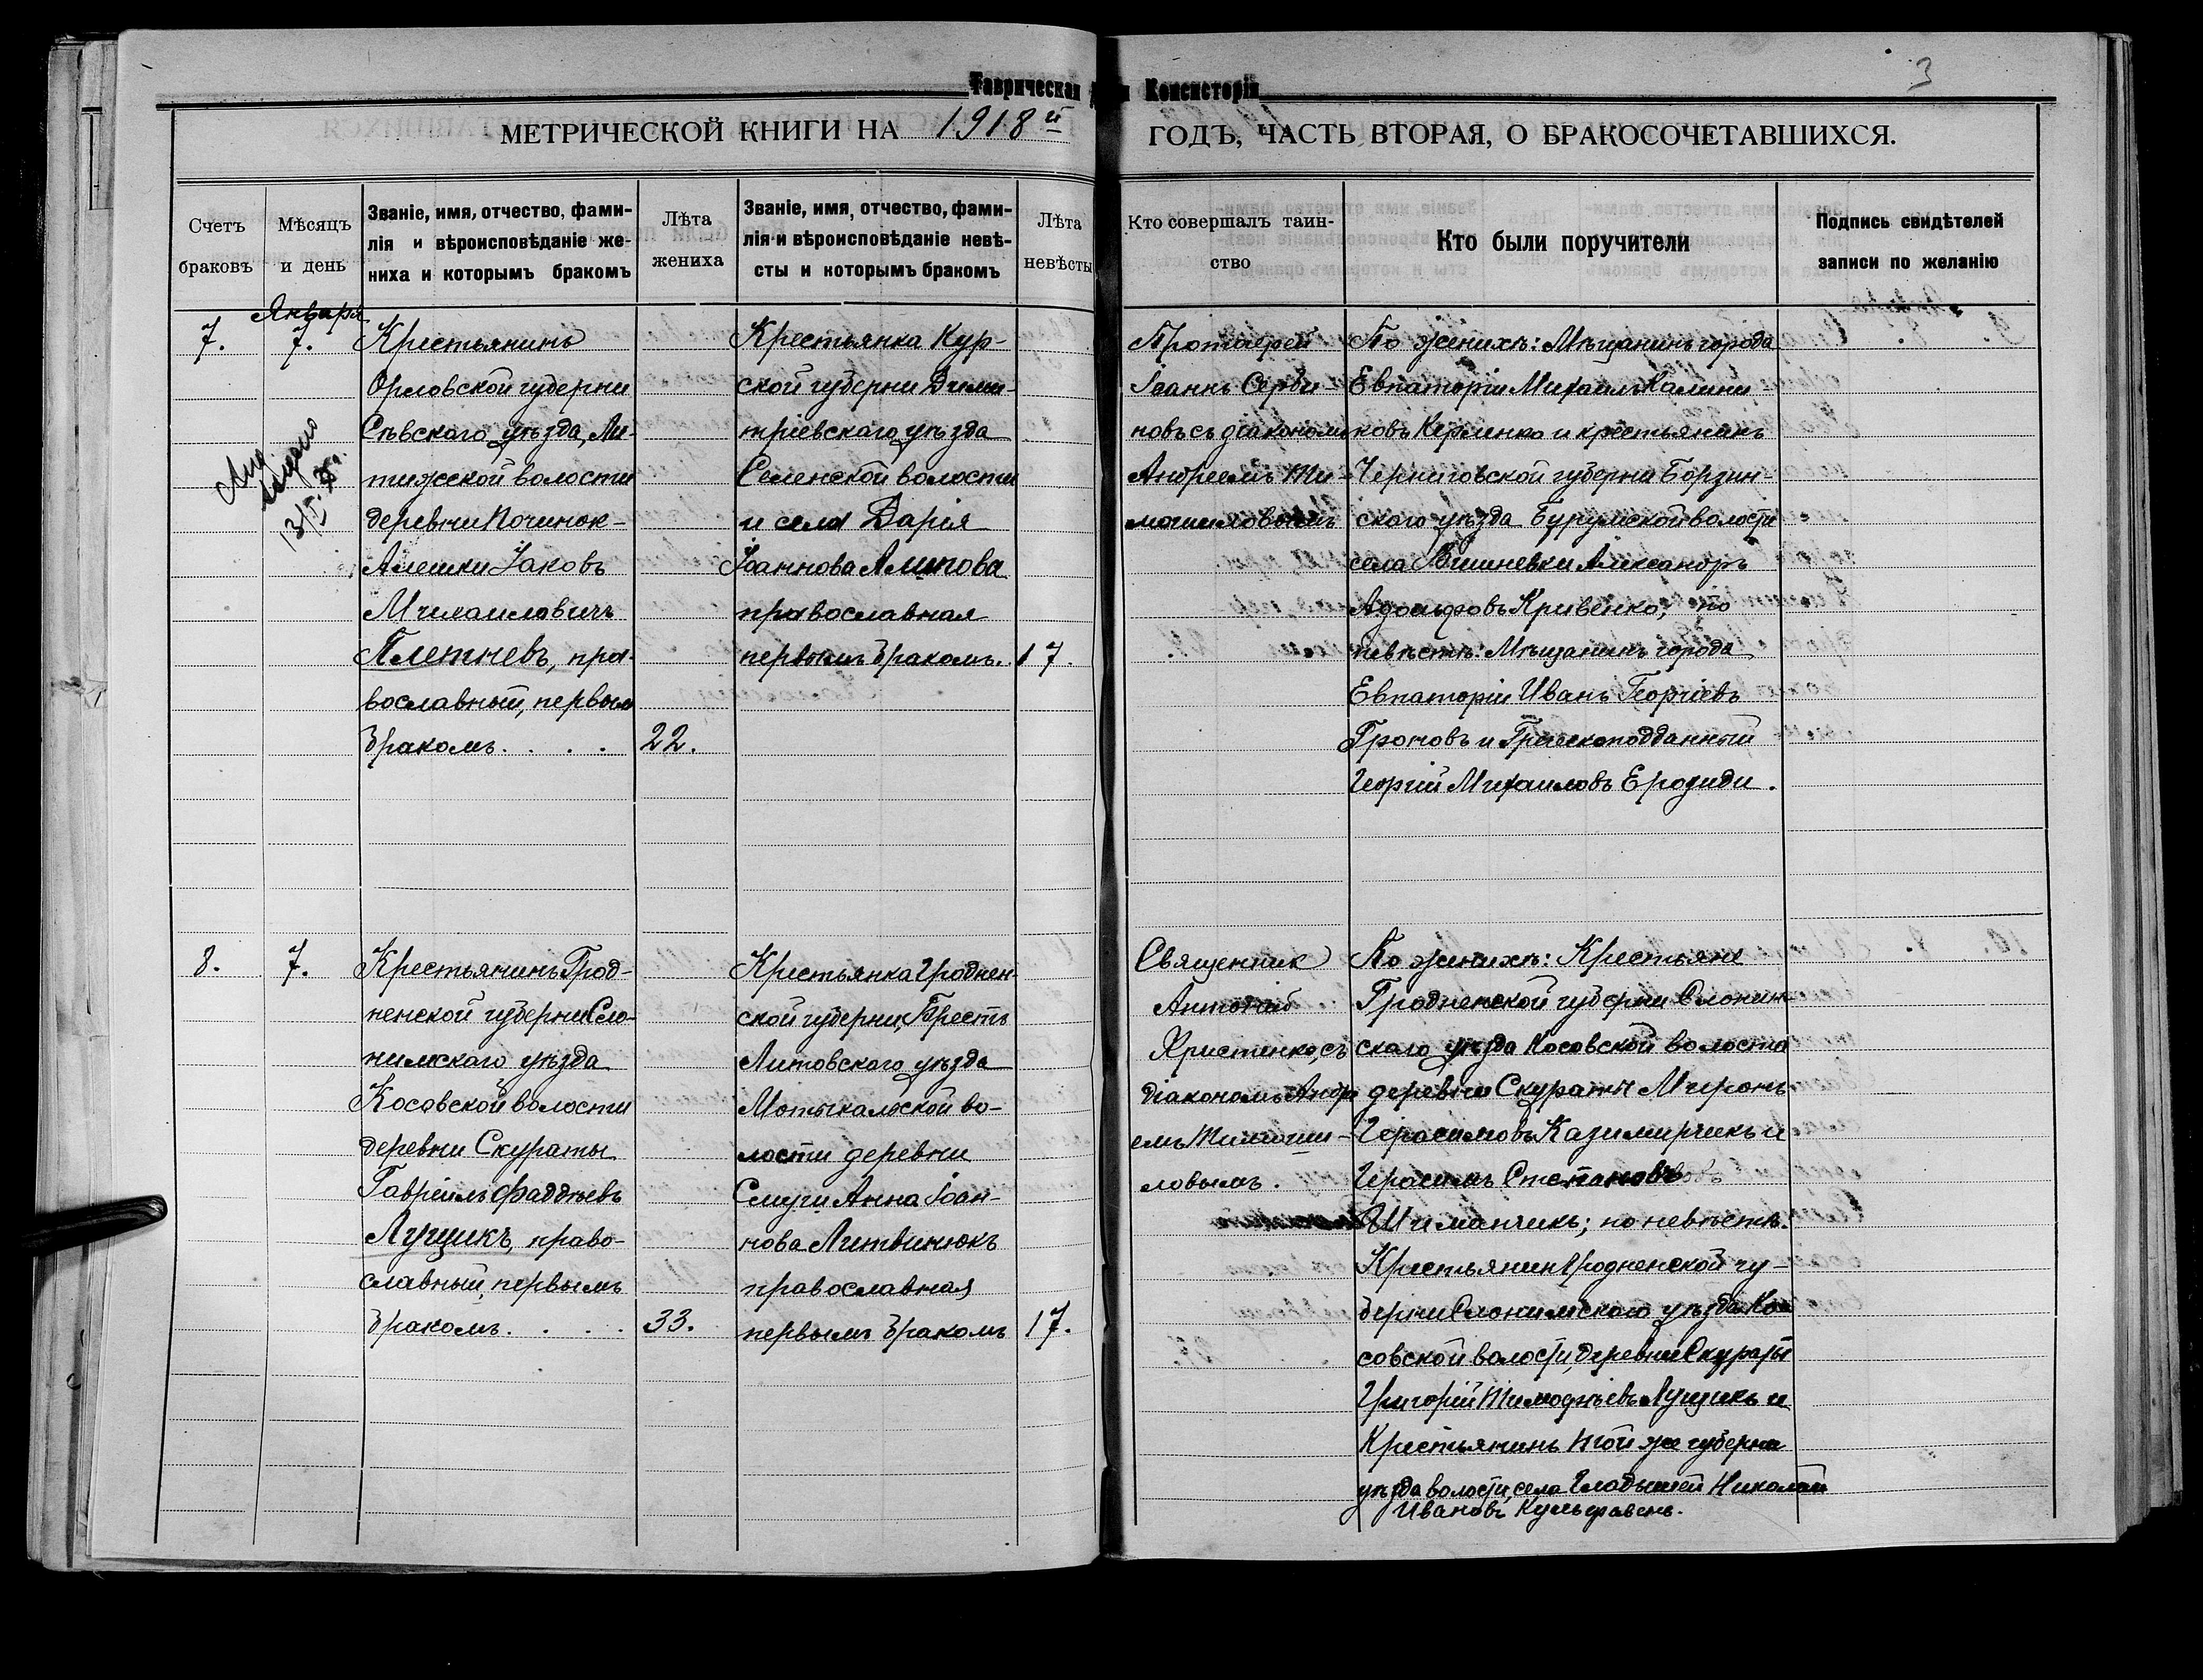 Таврическая Консисторія
3
МЕТРИЧЕСКОЙ КНИГИ НА 1918й ГОДЪ, ЧАСТЬ ВТОРАЯ, О БРАКОСОЧЕТАВШИХСЯ.
Счетъ
браковъ
Мѣсяцъ
и день
Званіе, имя, отчество, фами-
лія и вѣроисповѣданіе же-
ниха и которымъ бракомъ
Лѣта
жениха
Званіе, имя, отчество, фами-
лія и вѣроисповѣданіе невѣ-
сты и которымъ бракомъ
Лѣта
невѣсты
Кто совершалъ таин-
ство
Кто были поручители
Подпись свидѣтелей
записи по желанію
Января
7.
7.
Крестьянинъ
Орловской губерни
Сѣвского уѣзда, Ли-
тижской волости
деревни Починок-
Алешки Іаковъ
Михаиловичъ
Плетневъ, пра-
вославный, первым
бракомъ. . . .
22.
Крестьянка Кур-
ской губерни Дими-
тріевскаго уѣзда
Селенской волости
и села Дарія
Іоаннова Алипова
православная
первымъ бракомъ.
17.
Протоіерей
Іоаннъ Серби-
новъ съ діакономъ
Андреемъ Ти-
мошиловымъ
По женихѣ: Мѣщанинъ города
Евпаторіи Михаилъ Калини-
ковъ Керленко и крестьянинъ
Черниговской губерни Борзин-
ского уѣзда Бурумской волости
села Вишневки Александръ
Адольфовъ Кривенко; по
невѣстѣ: Мѣщанинъ города
Евпаторіи Иванъ Георгіевъ
Громовъ и Греческоподданный
Георгій Михаиловъ Ерозиди.
8.
7.
Крестьянинъ Грод-
ненской губерни Сло-
нимскаго уѣзда
Косовской волости
деревни Скураты
Гавріилъ Фаддѣевъ
Лущикъ, право-
славный, первымъ
бракомъ. . . .
33.
Крестьянка Гроднен-
ской губерни, Брестъ
Литовского уѣзда
Мотыкальской во-
лости деревни
Слуги Анна Іоан-
нова Литвинюкъ
православная
первымъ бракомъ
17.
Священник
Антоній
Христенко, съ
діакономъ Андре
емъ Тимоши-
ловымъ.
По женихѣ: Крестьяне
Гродненской губерни Слоним-
скаго уѣзда Косовской волости
деревни Скураты Миронъ
Герасимовъ Казимирчикъ и
Герасимъ Степановъ
Шиманчикъ; по невѣстѣ.
Крестьянин Гродненской гу-
берни Слонимского уѣзда Ко
совской волости, деревни Скураты
Григорій Тимофѣевъ Лущикъ и
Крестьянинъ той же губерни
уѣзда волости, села Гладышей Николай
Ивановъ Кульгавень.